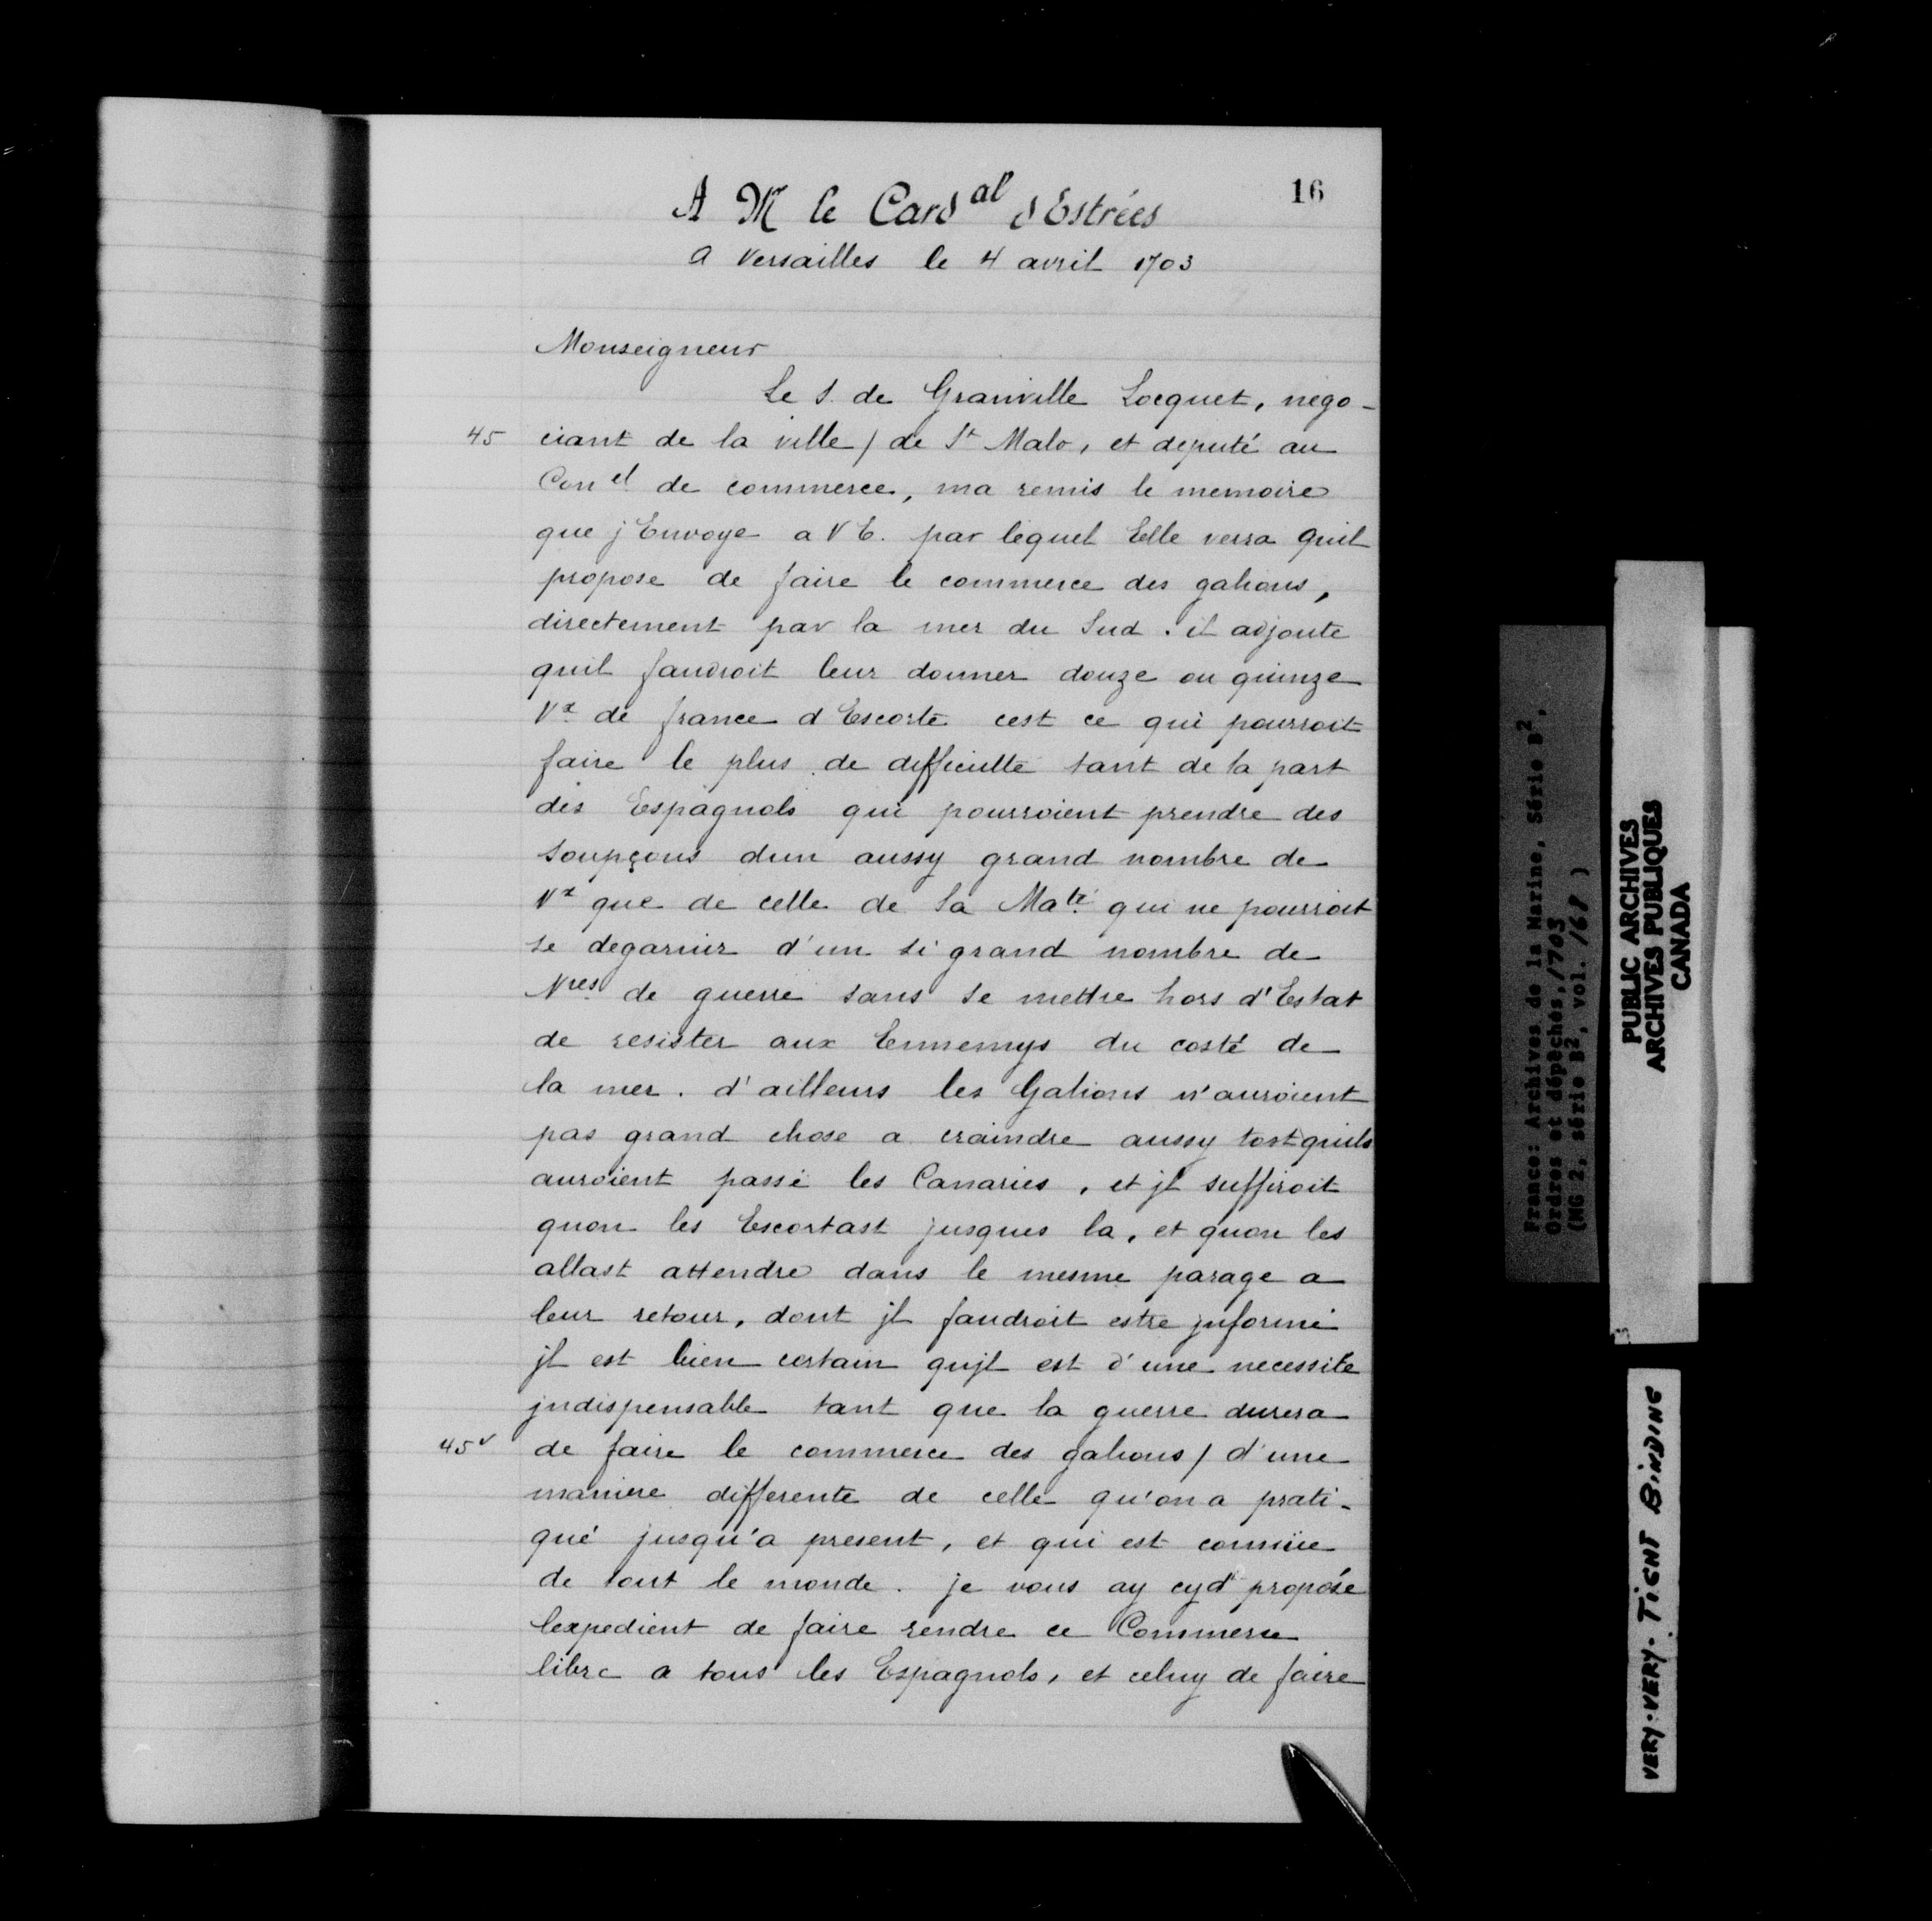 16
A M le Card al d'Estrées
a Versailles le 4 avril 1703
Monseigneur
Le S. de Granville Locquet, négo-
45 ciant de la ville / de St Malo, et deputé au
Con el de commerce, ma remis le memoire
que j'Envoye a V E. par lequel Elle verra quil
propose de faire le commerce des galions,
directement par la mer du Sud. il adjoute
quil faudroit leur donner douze ou quinze
Vx de france d'Escorte cest ce qui pourroit
faire le plus de difficulté tant de la part
des Espagnols qui pourroient prendre des
soupçons dun aussy grand nombre de
Vx que de celle de Sa Maté qui ne pourroit
se degarnir d'un si grand nombre de
Nres de guerre sans se mettre hors d'Estat
de resister aux Ennemys du costé de
la mer. d'ailleurs les Galions n'auroient
pas grand chose a craindre aussy tost quils
auroient passé les Canaries, et jl suffiroit
quon les Escortast jusques la, et quon les
allast attendre dans le mesme parage a
leur retour, dont jl faudroit estre jnformé
jl est bien certain qujl est d'une necessite
jndispensable tant que la guerre durera
45v de faire le commerce des galions / d'une
maniere differente de celle qu'on a prati-
qué jusqu'a present, et qui est connüe
de tout le monde. je vous ay cyd t proposé
lexpedient de faire rendre ce Commerce
libre a tous les Espagnols, et celuy de faire
France: Archives de la Marine, Série B2,
Ordres et dépêches, 1703
(MG 2, série B2, vol. 168 )
PUBLIC ARCHIVES
ARCHIVES PUBLIQUES
CANADA
3
VERY-VERY-TIGNT BINDING